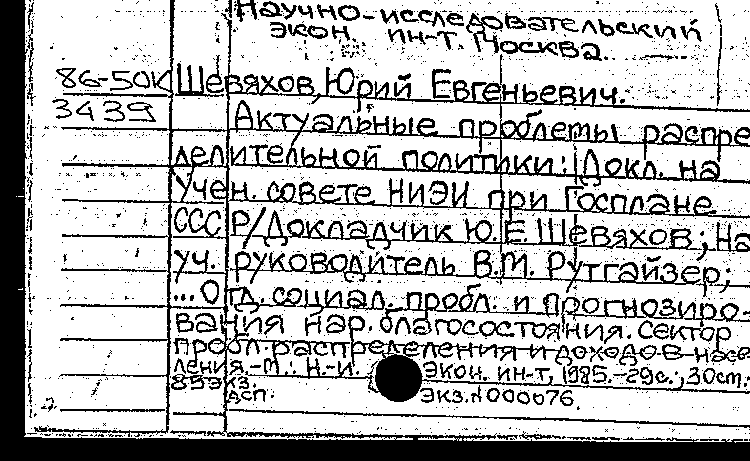 Научно-исследовательский
экон. ин-т. Москва.
86-50К Шевяхов, Юрий Евгеньевич.
3439 Актуальные проблемы распре-
делительной политики: Докл. на
Учен. совете НИЭИ при Госплане
СССР/Докладчик Ю.Е. Шевяхов; На
уч. руководитель В.М. Рутгайзер;
...Отд. социал. пробл. и прогнозиро-
вания нар. благосостояния. Сектор
пробл. распределения и доходов насе
ления.-М.: Н.-и. экон. ин-т, 1985.-29с.; 30см.-
85экз.
экз.N000076.